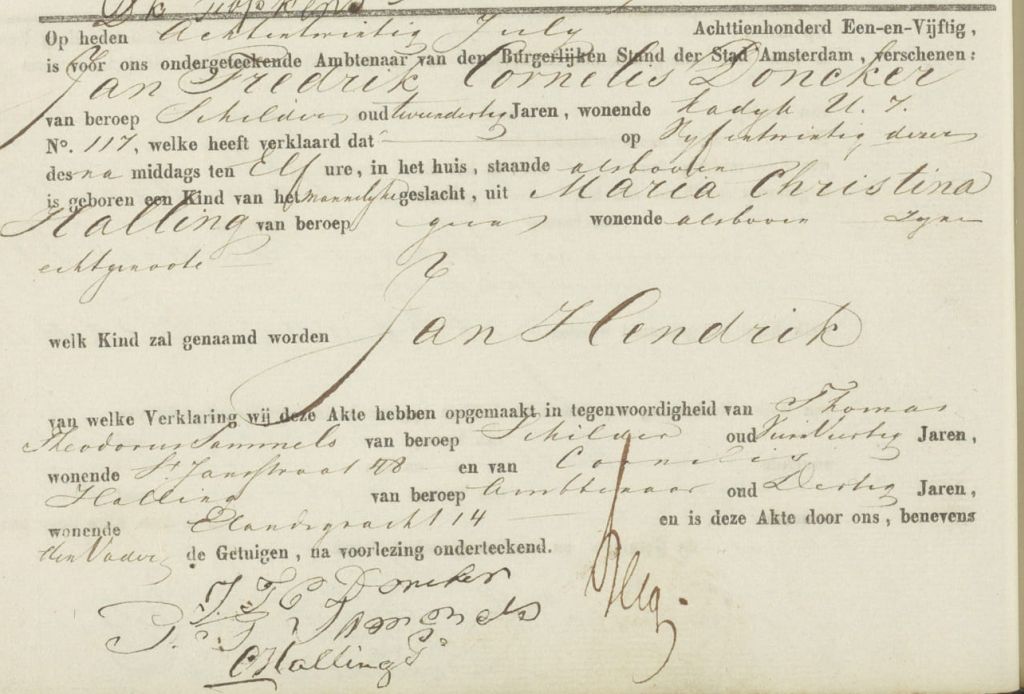 Op heden Achtentwintig July Achttienhonderd Een-en-Vijftig,
is voor ons ondergeteekende Ambtenaar van den Burgerlijken Stand der Stad Amsterdam, verschenen:
Jan Fredrik Cornelis Doncker
van beroep Schilder oud tweendertig Jaren, wonende Kadyk U. 7.
No. 117, welke heeft verklaard dat op Vyfentwintig dezer
des na middags ten Elf ure, in het huis, staande alsboven
is geboren een Kind van het mannelyke geslacht, uit Maria Christina
Halling van beroep geen wonende alsboven Zyne
echtgenoote
welk Kind zal genaamd worden Jan Hendrik
van welke Verklaring wij deze Akte hebben opgemaakt in tegenwoordigheid van Thomas
Theodorus Sammels van beroep Schilder oud Jaren,
wonende St Jansstraat 48 en van Cornelis
Halling van beroep Ambtenaar oud Dertig Jaren,
wonende Elandsgracht 14 en is deze Akte door ons, benevens
den Vader de Getuigen, na voorlezing onderteekend.
J. F. C Doncker
C Halling